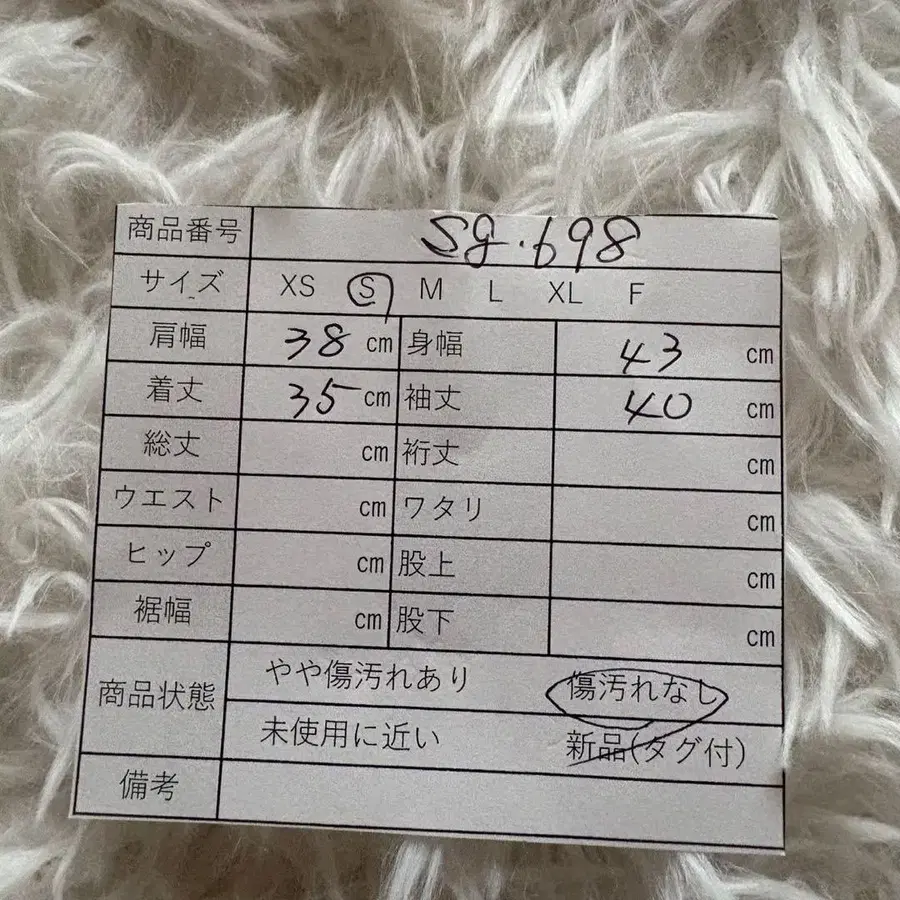 商品番号 sg.698
サイズ XS S M L XL F
肩幅 38 cm 身幅 43 cm
着丈 35 cm 袖丈 40 cm
総丈 cm 裄丈 cm
ウエスト cm ワタリ cm
ヒップ cm 股上 cm
裾幅 cm 股下 cm
商品状態 やや傷汚れあり 傷汚れなし
未使用に近い 新品(タグ付)
備考